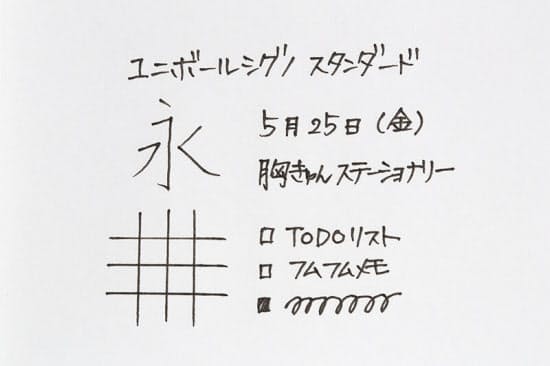 ユニボールシグノ スタンダード
永
5月25日(金)
胸きゅんステーショナリー
□ TODOリスト
□ フムフムメモ
■